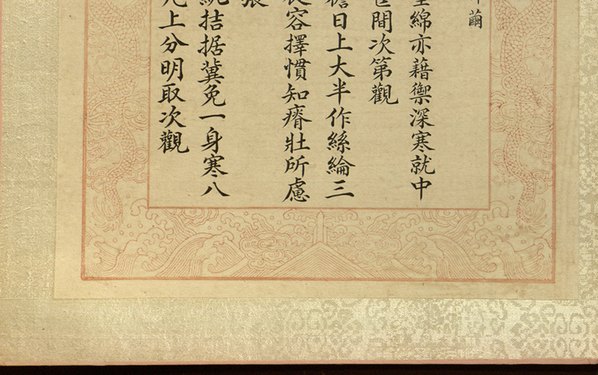 繭
綿亦藉禦深寒就中
間次第觀
日上大半作絲綸三
容擇慣知瘠壯所慮
拮据冀免一身寒八
上分明取次觀